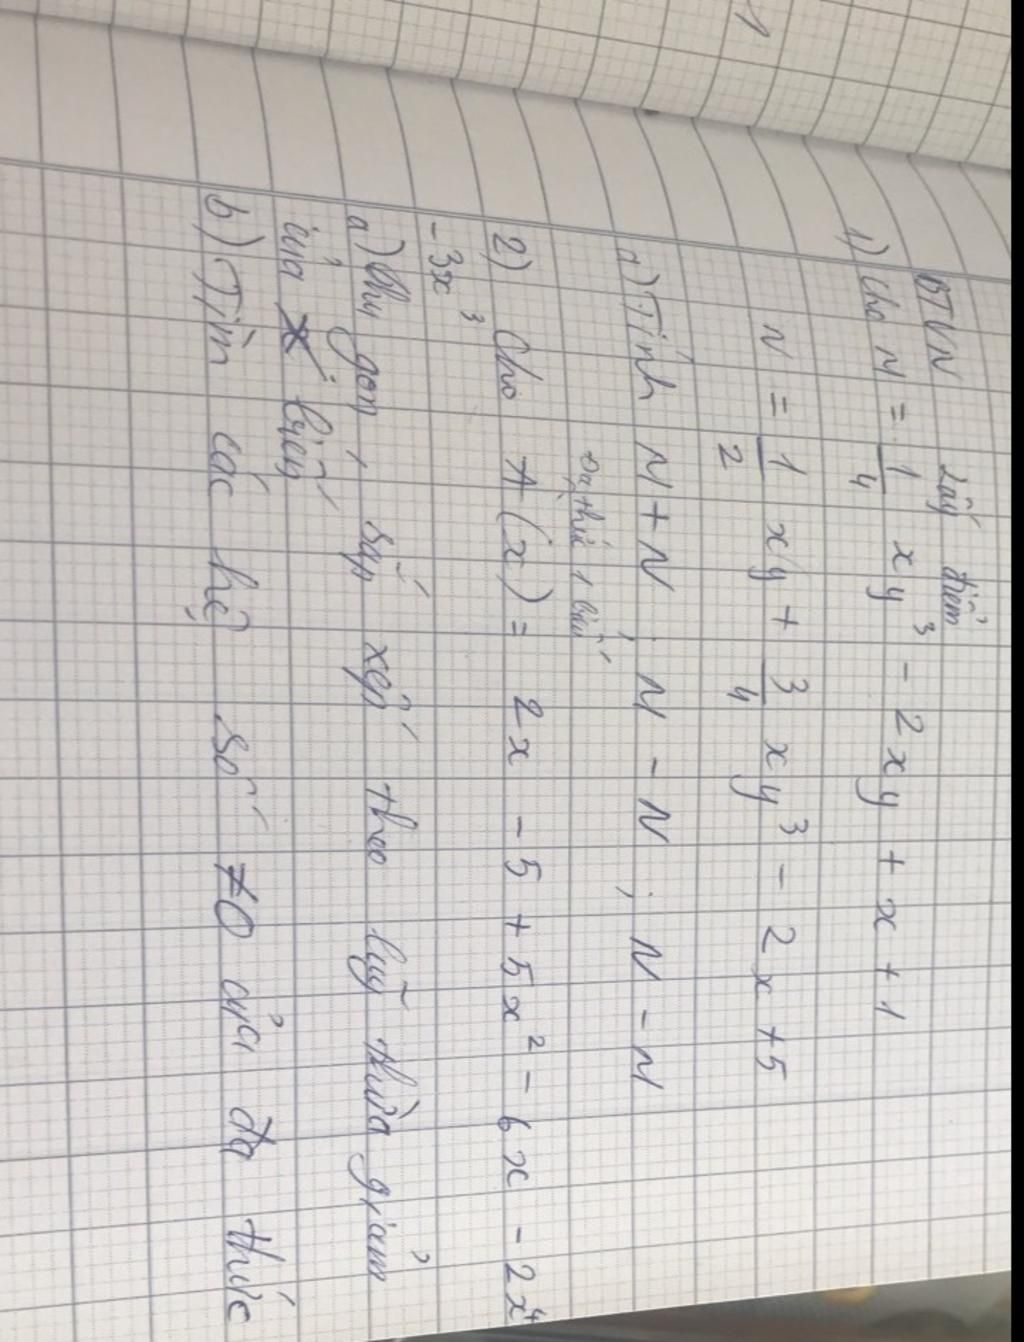 BTVN Lấy điểm
1) Cho M = 1/4 xy³ - 2xy + x + 1
N = 1/2 xy + 3/4 xy³ - 2x + 5
a) Tính M + N ; M - N ; N - M
Đa thức 1 biến
2) Cho A(x) = 2x - 5 + 5x² - 6x - 2x⁴
- 3x³
a) Thu gọn, sắp xếp theo luỹ thừa giảm
của biến
b) Tìm các hệ số ≠0 của đa thức